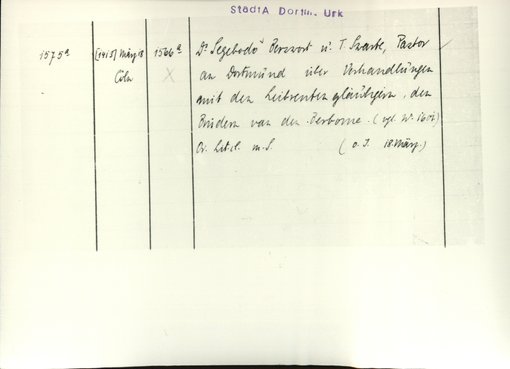 StadtA Dortm. Urk
1575a [1415] März 18 1566a Dr Segebodo Berswort u. T. Swarte, Pastor
Cöln X an Dortmund über Verhandlungen
mit den Leibrentengläubigern, den
Brüdern van der (vgl. Nr.
Or. Lit. cl. m. S. (o. J. 18 März.)